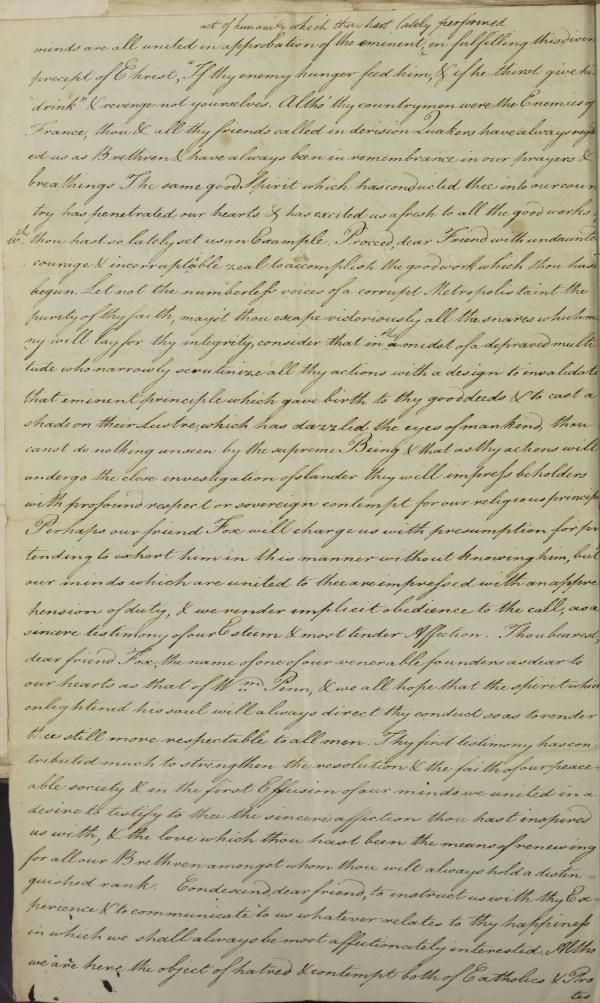 act of humanity which thou hast lately performed
minds are all united in approbation of the eminent, in fulfilling this divin
precept of Christ, "If thy enemy hunger feed him, & if he thirst give hi
drink" & revenge not yourselves. Altho' thy countrymen were the Enemies of
France, thou & all thy friends called in derision Quakers have always regd
ed us as Brethren & have always been in remembrance in our prayers &
breathings. The same good Spirit which has conducted thee into our coun
try has penetrated our hearts & has excited us afresh to all the good works
thou hast so lately set us an Example. Proceed, dear Friend with undaunte
courage & incorruptable zeal to accomplish the good work which thou hast
begun. Let not the numberless voices of a corrupt Metropolis taint the
purity of thy faith, mayst thou escape victoriously all the snares which ma
ny will lay for thy integrity, consider that in the midst of a depraved multi
tude who narrowly scrutinize all thy actions with a design to invalidate
that eminent principle which gave birth to thy good deeds & to cast a
shade on their Lustre, which has dazzled the eyes of mankind, thou
canst do nothing unseen by the supreme Being & that as thy actions will
undergo the close investigation of slander they will impress beholders
with profound respect or sovereign contempt for our religious principl
Perhaps our friend Fox will charge us with presumption for pr
tending to exhort him in this manner without knowing him, but
our minds which are united to thee are impressed with an appre
hension of duty, & we render implicit obedience to the call, as a
sincere testimony of our Esteem & most tender Affection. Thou bearest,
dear friend Fox, the name of one of our venerable founders as dear to
our hearts as that of Wm Penn, & we all hope that the spirit which
enlightened his soul will always direct thy conduct so as to render
thee still more respectable to all men. Thy first testimony has con=
tributed much to strengthen the resolution & the faith of our peace=
able society & in the first Effusion of our minds we united in a
desire to testify to thee the sincere affection thou hast inspired
us with, & the love which thou hast been the means of renewing
for all our Brethren amongst whom thou wilt always hold a distin=
guished rank. Condescend, dear friend, to instruct us with thy Ex=
perience & to communicate to us whatever relates to thy happiness
in which we shall always be most affectionately interested. Altho
we are here the object of hatred & contempt both of Catholics & Pro
tes